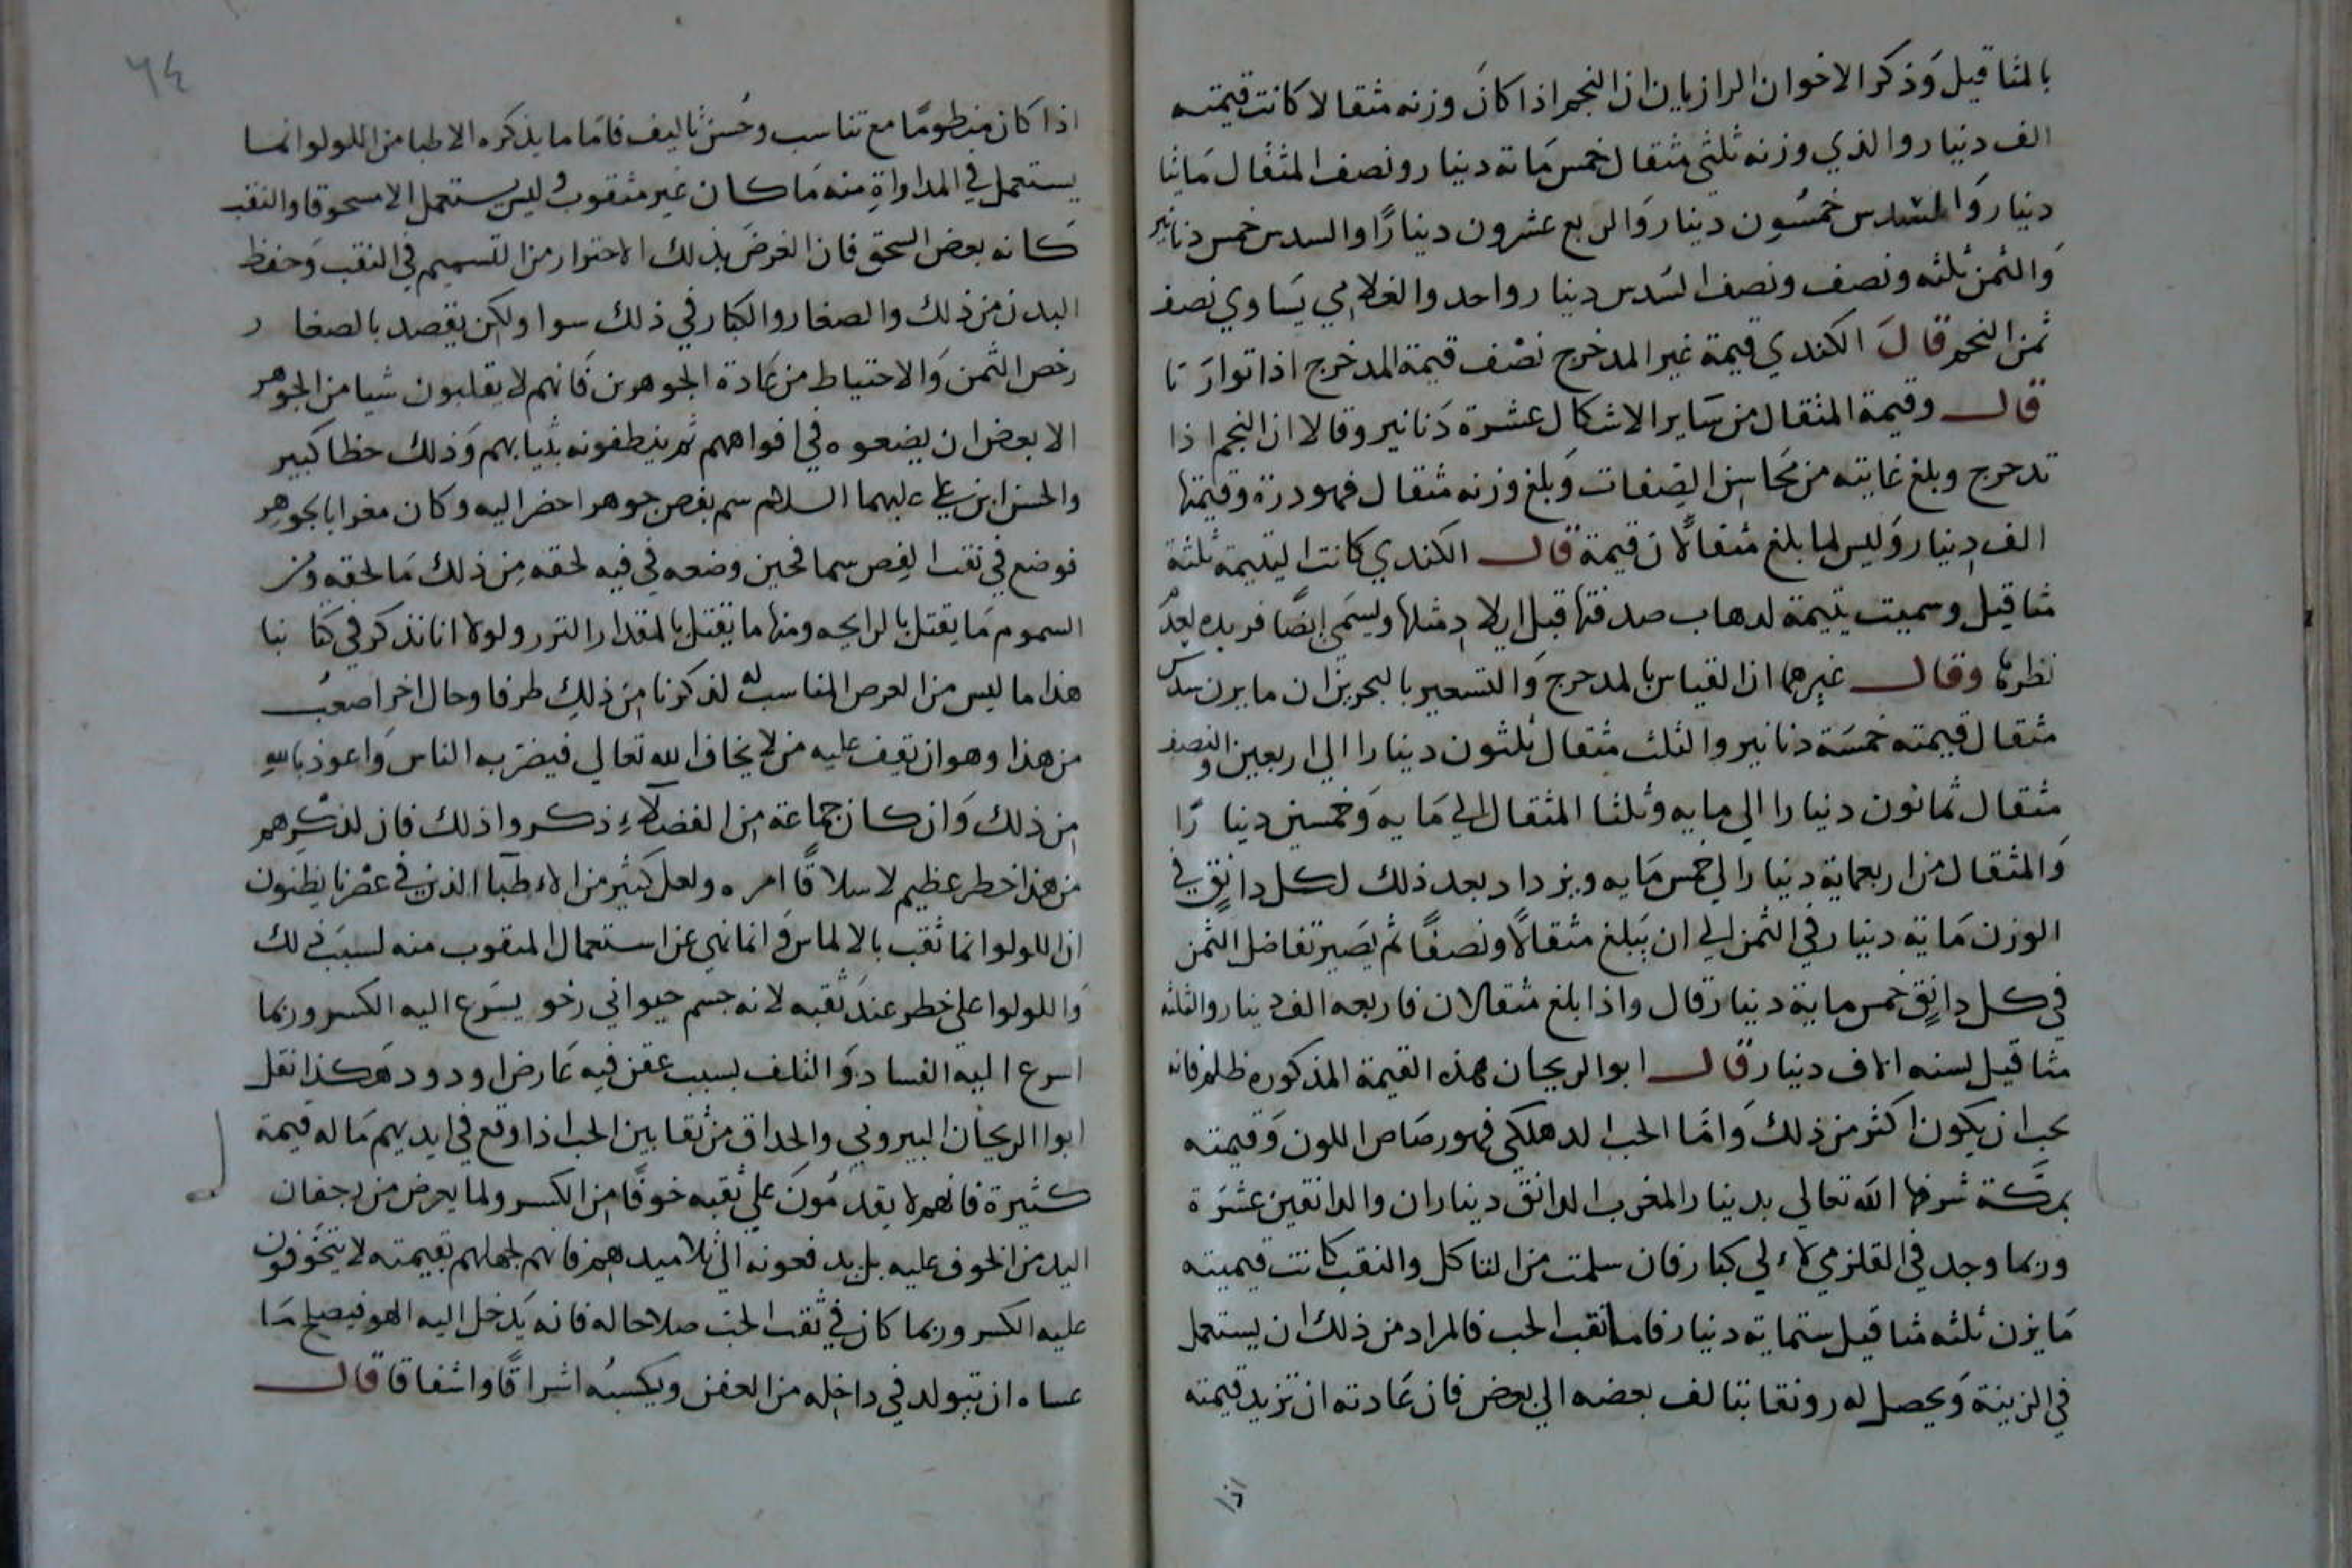 بالمثاقيل وَذكر الاخوان الرازيان ان النجم اذا كانَ وزنه مثقالا كانت قيمته
الف دينار والذي وزنه ثلثي مثقال خمس مَاته دينار ونصف المثقال مَايتا
دينار وَالسدس خمسُون دينار وَالربع عشرون دينارًا والسدس خمس دنانير
وَالثمن ثلثه ونصف ونصف السَدس دينار واحد والغلامي يسَاوي نصف
ثمن النجم قالَ الكندي قيمة غير المدحرج نصْف قيمة المدحرج اذا توازَنا
قال وقيمة المثقال من سَاير الاشكال عشرة دَنانير وقالا ان النجم اذا
تدحرج وبلغ غايته من محَاسِن الصِفات وَبلغ وزنه مثقال فهو درة وقيمتها
الف دِينار وَليس لما بلغ مثقالًا ن قيمة قال الكندي كانت اليتيمة ثلثة
مثاقيل وسميت يتيمة لدهاب صدفتها قبل ايلادِ مثلها وتسمَى ايضًا فريده لعدَم
نظيرها وقال غيرهما ان القياس بالمدحرج وَالتسعير بالبحرين ان ما يزن سدس
مثقال قيمته خمسَة دنانير والثلث مثقال ثلثون دينارا الي اربعين والنصف
مثقال ثمانون دينارا الي مايه وثلثا المثقال الي مَايه وَخمسين دينارًا
وَالمثقال من اربعماية دينارا الي خمس مَايه ويزداد بعد ذلك لكل دانِقٍ في
الوزن مَاية دينار في الثمن الي ان يَبلغ مثقالًا ونصفًا ثم يصَير تفاضل الثمن
في كل دِانِقٍ خمس ماية دينار قال واذا بلغ مثقالان فاربعه الف دينار والثلثه
مثاقيل لسته الاف دينار قال ابو الريحان هذه القيمة المذكوره ظلم فانه
يجب ان يكون اكثر من ذلك وَامَّا الحب الدهلكي فهو رصَاصي اللون وَقيمته
بمكَّة شرفها اللّه تعالي بدينار المغرب الدانق ديناران والدانقين عشَرَة
وربما وجد في القلزمي لاءلي كبار فان سلمت من التاكل والثقب كانت قيمته
مَا يزن ثلثه مثاقيل ستماية دينار فاما ثقب الحب فالمراد من ذلك ان يستعمل
في الزينة وَيحصل له رونقا بتالف بعضه الي بعض فان عَادته ان تزيد قيمته
اذا
٦٤
اذا كان منظومًا مع تناسب وحُسن تاليف فامَا ما يذكره الاطبا من اللولو انما
يستعمل في المداواةِ منه مَا كان غير مثقوب وليس يستعمل الا مسحوقا والثقب
كَانه بعض السحق فان الغرضَ بذلك الاحتراز من التسميم في الثقب وَحفظ
البدن من ذلك والصغار والكبار في ذلك سوا ولكن يقصد بالصغار
رخص الثمن وَالاحتياط من عَادة الجوهرين فَانهم لا يقلبون شيا من الجوهر
الا بعض ان يضعوه في افواههم ثم ينطفونه بثيابهم وَذلك خطا كبير
والحسن ابن علي عليهما السلام سم بفص جوهر احضر اليه وكان مغرا بالجوهر
فوضع في ثقب الفِص سما فحين وضعه في فيه لحقه مِن ذلك مَا لحقه ومن
السموم مَا يقتل بالرايحه ومنها ما يقتل بالمقدار النزر ولولا انا نذكر في كتابنا
هذا ما ليس من الغرض المناسب له لذكرنا مِن ذلِك طرفا وحال اخر اصعبُ
من هذا وهو ان يقِف عليه من لا يخاف الله تعالي فيضرَ به الناس وَاعوذ باللهِ
مِن ذلك وَان كان جماعة مِن الفضلاءِ ذكروا ذلك فان لذكِرهم
من هذا خطر عظيم لاسلاقًا امره ولعل كثير من الاءطبا الذين في عصْرنا يظنون
ان اللولو انما ثقب بالالماس وَ انما نهي عن استعمال المثقوب منه لسببَ ذلك
وَاللولو اعلي خطر عندَ ثقبه لانه جسم حيواني رخو يسَرع اليه الكسر وربما
اسرع اليه الفساد وَ التلف بسبب عفن فيه عَارض او دود وَهكذا نقل
ابوا الريحان البيروني والحداق من ثقابين الحب اذا وقع في ايديهم مَا له قيمة
كثيرة فانهم لا يقدمُونَ علي ثقبه خوفًا مِن الكسر ولما يعرض من رجفان
اليد من الخوف عليه بل يدفعونه الي تلاميدهم فانهم لجهلهم بقيمته لا يتخَوفون
عليه الكسر وربما كان في ثقب الحب صلاحا له فانه يَدخل اليه الهو فيصلح مَا
عساه ان تيولد في داخِله من العفن ويكسبُه اشراقًا واشفاقا قال